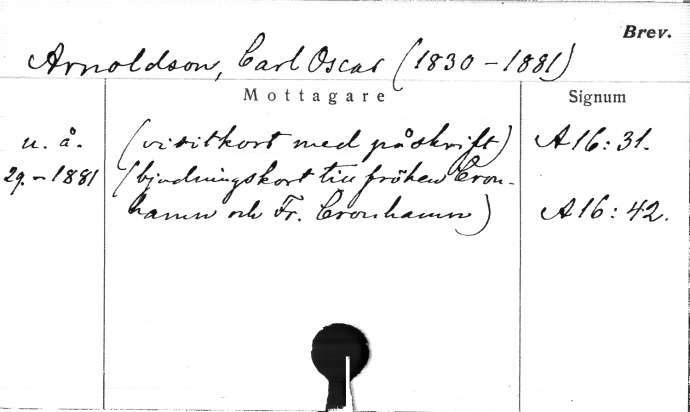 Brev.
Arnoldson, Carl Oscar (1830-1881)
Mottagare Signum
u. å. (visitkort med påskrift) A16:31.
29.-1881 (bjudningskort till fröken Cron-
hamn och Fr. Cronhamn) A16:42.